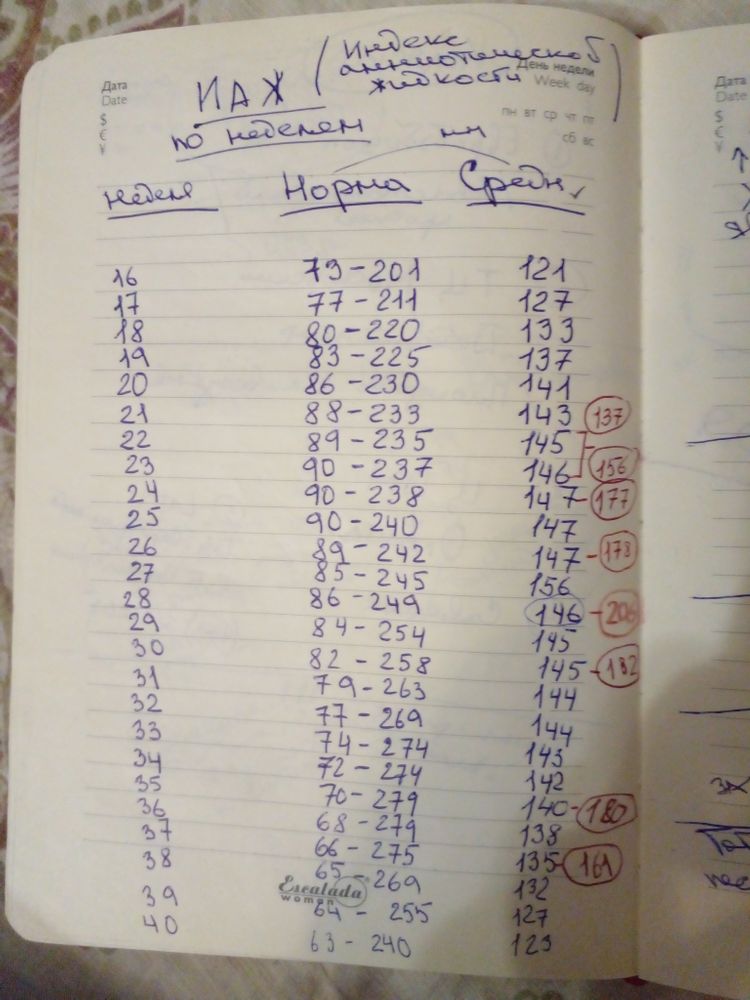 Дата
Date
$
€
¥
ИАЖ (Индекс
амниотической
жидкости)
День недели
Week day
пн вт ср чт пт
сб вс
по неделем мм
неделя Норма Средн.
16 73-201 121
17 77-211 127
18 80-220 133
19 83-225 137
20 86-230 141
21 88-233 143 137
22 89-235 145
23 90-237 146 156
24 90-238 147-177
25 90-240 147
26 89-242 147-178
27 85-245 156
28 86-249 146-206
29 84-254 145
30 82-258 145-182
31 79-263 144
32 77-269 144
33 74-274 143
34 72-274 142
35 70-279 140-180
36 68-279 138
37 66-275 135-161
38 65-269 132
39 64-255 127
40 63-240 123
Escalada
woman
Дата
Date
$
€
¥